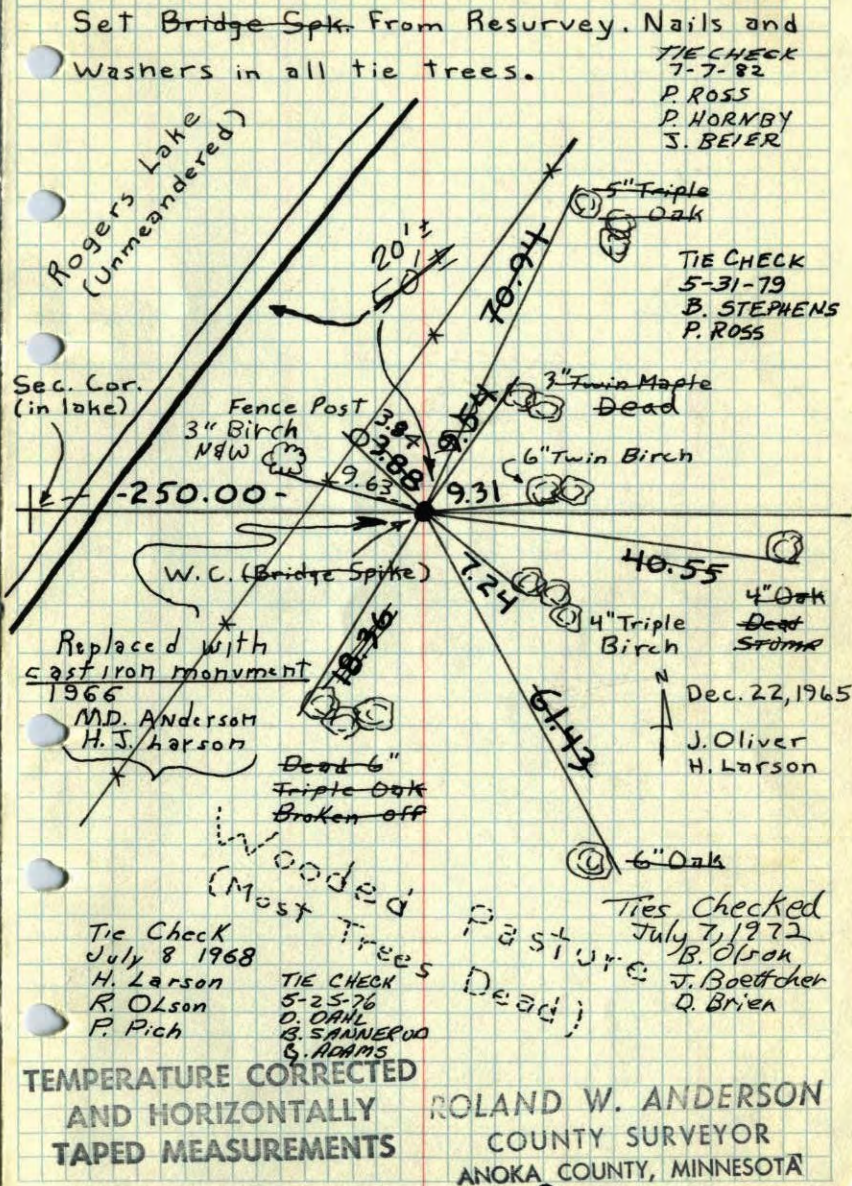 Set Bridge Spk. From Resurvey. Nails and
Washers in all tie trees.
TIE CHECK
7-7-82
P. ROSS
P. HORNBY
J. BEIER
Rogers Lake
(Unmeandered)
5" Triple
Oak
20'±
70.94
TIE CHECK
5-31-79
B. STEPHENS
P. ROSS
Sec. Cor.
(in lake)
Fence Post
3" Birch
N&W
3.84
3.88
9.54
3" Twin Maple
Dead
6" Twin Birch
9.63
9.31
-250.00-
W.C. (Bridge Spike)
7.24
40.55
4" Oak
Dead
STUMP
4" Triple
Birch
18.36
Replaced with
cast iron monument
1966
M.D. Anderson
H.J. Larson
N
Dec. 22, 1965
J. Oliver
H. Larson
61.43
Dead 6"
Triple Oak
Broken off
6" Oak
Wooded Pasture
(Most Trees Dead)
Tie Check
July 8 1968
H. Larson
R. OLson
P. Pich
TIE CHECK
5-25-76
D. DAHL
B. SANNERUD
G. ADAMS
Ties Checked
July 7, 1972
B. Olson
J. Boettcher
D. Brien
TEMPERATURE CORRECTED
AND HORIZONTALLY
TAPED MEASUREMENTS
ROLAND W. ANDERSON
COUNTY SURVEYOR
ANOKA COUNTY, MINNESOTA